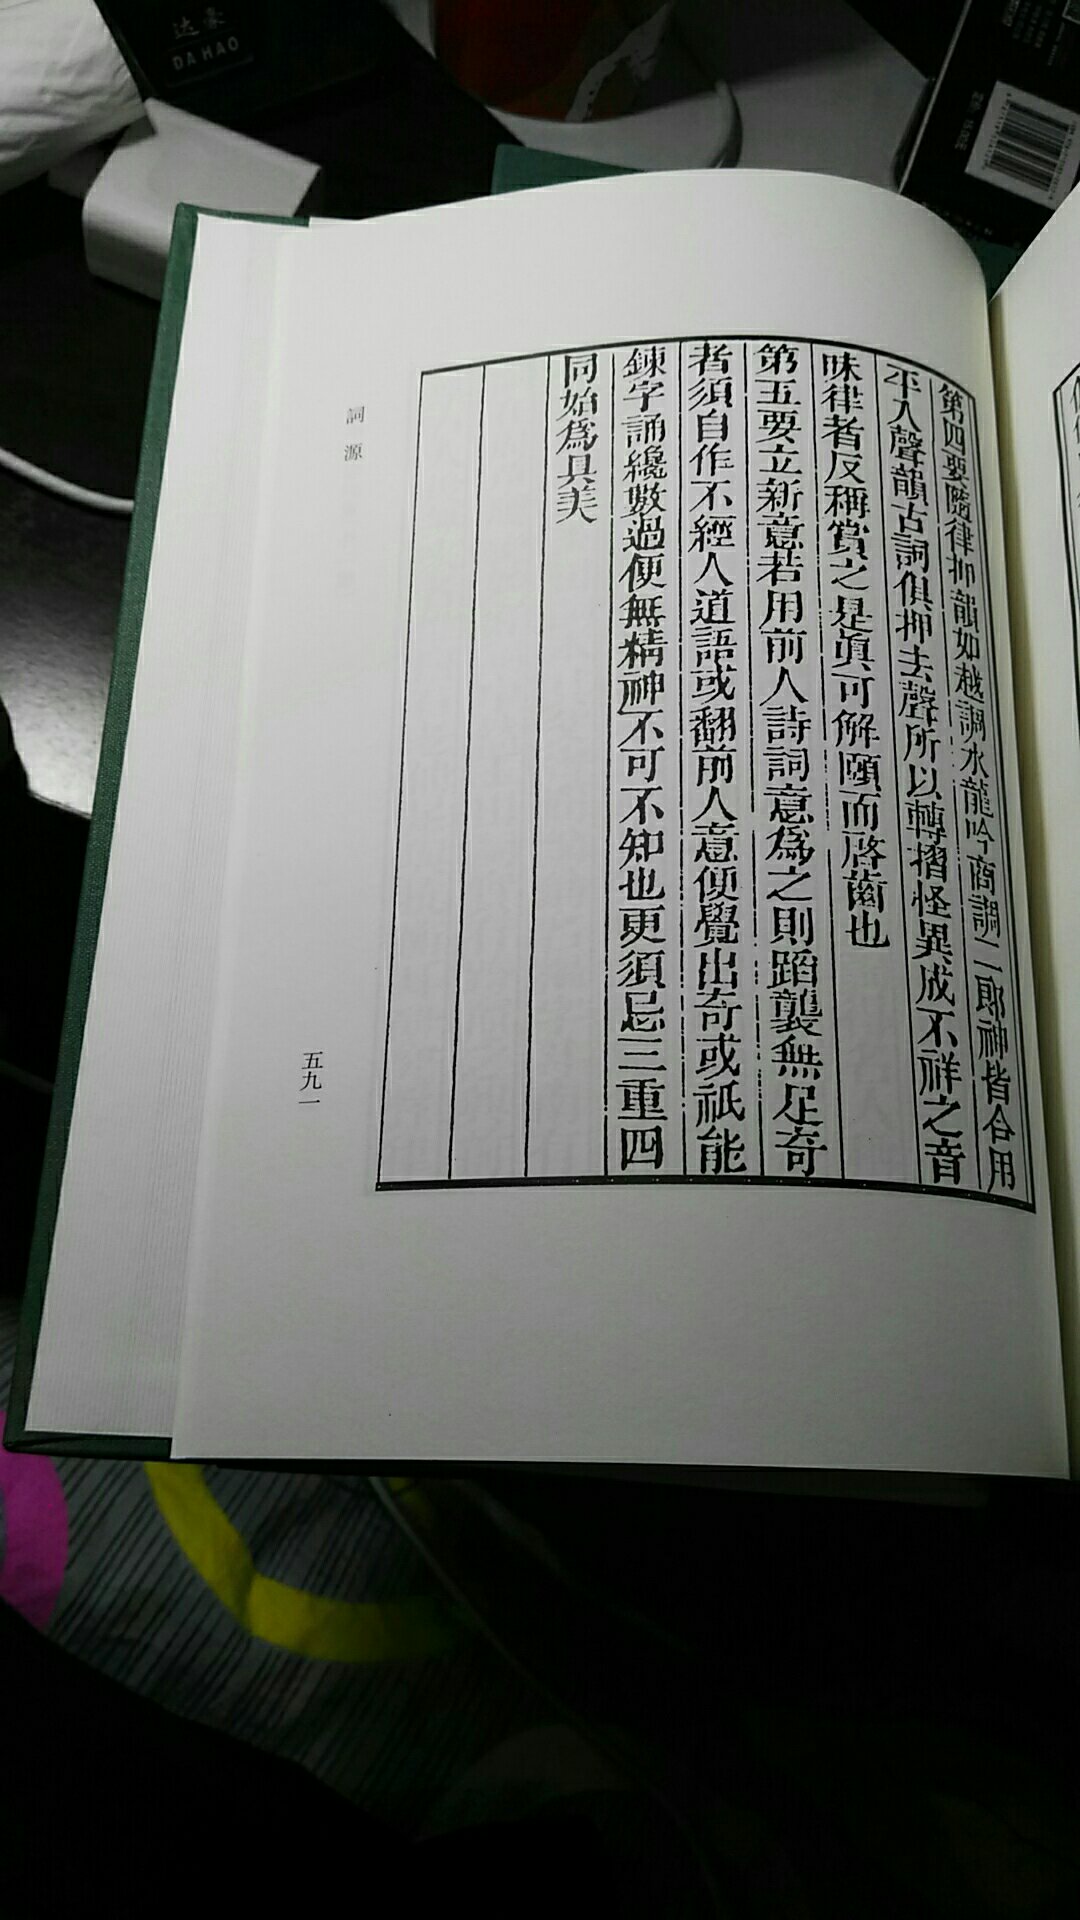 达豪
DA HAO
第四要隨律押韻如越調水龍吟商調二郎神皆合用
平入聲韻古詞俱押去聲所以轉摺怪異成不祥之音
昧律者反稱賞之是眞可解頤而啓齒也
第五要立新意若用前人詩詞意爲之則蹈襲無足奇
者須自作不經人道語或翻前人意便覺出奇或祇能
鍊字誦纔數過便無精神不可不知也更須忌三重四
同始爲具美
詞源
五九一